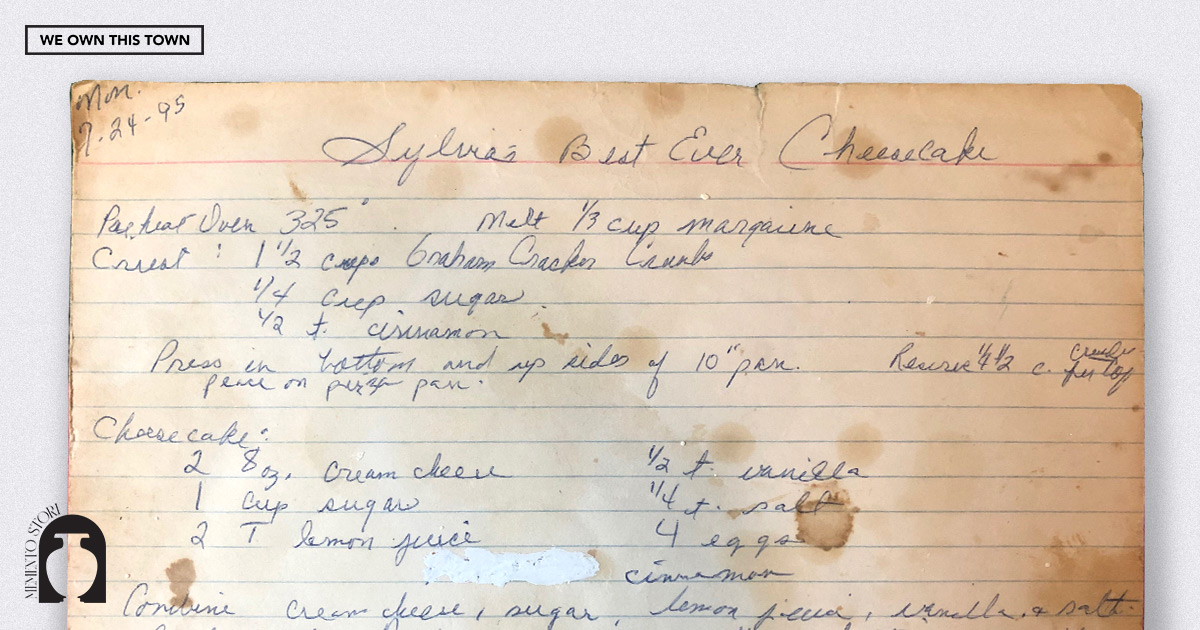 WE OWN THIS TOWN
Mon.
7-24-95
Sylvia's Best Ever Cheesecake
Preheat Oven 325° . Melt 1/3 cup margarine
Crust : 1 1/2 cups Graham Cracker Crumbs
1/4 cup sugar
1/2 t. cinnamon
Press in bottom and up sides of 10" pan. Reserve c. crumbs
on pizza pan. for top
Cheesecake:
2 8 oz. cream cheese 1/2 t. vanilla
1 cup sugar 1/4 t. salt
2 T lemon juice 4 eggs
cinnamon
Combine cream cheese, sugar, lemon juice, vanilla, & salt.
MEMENTO STORI